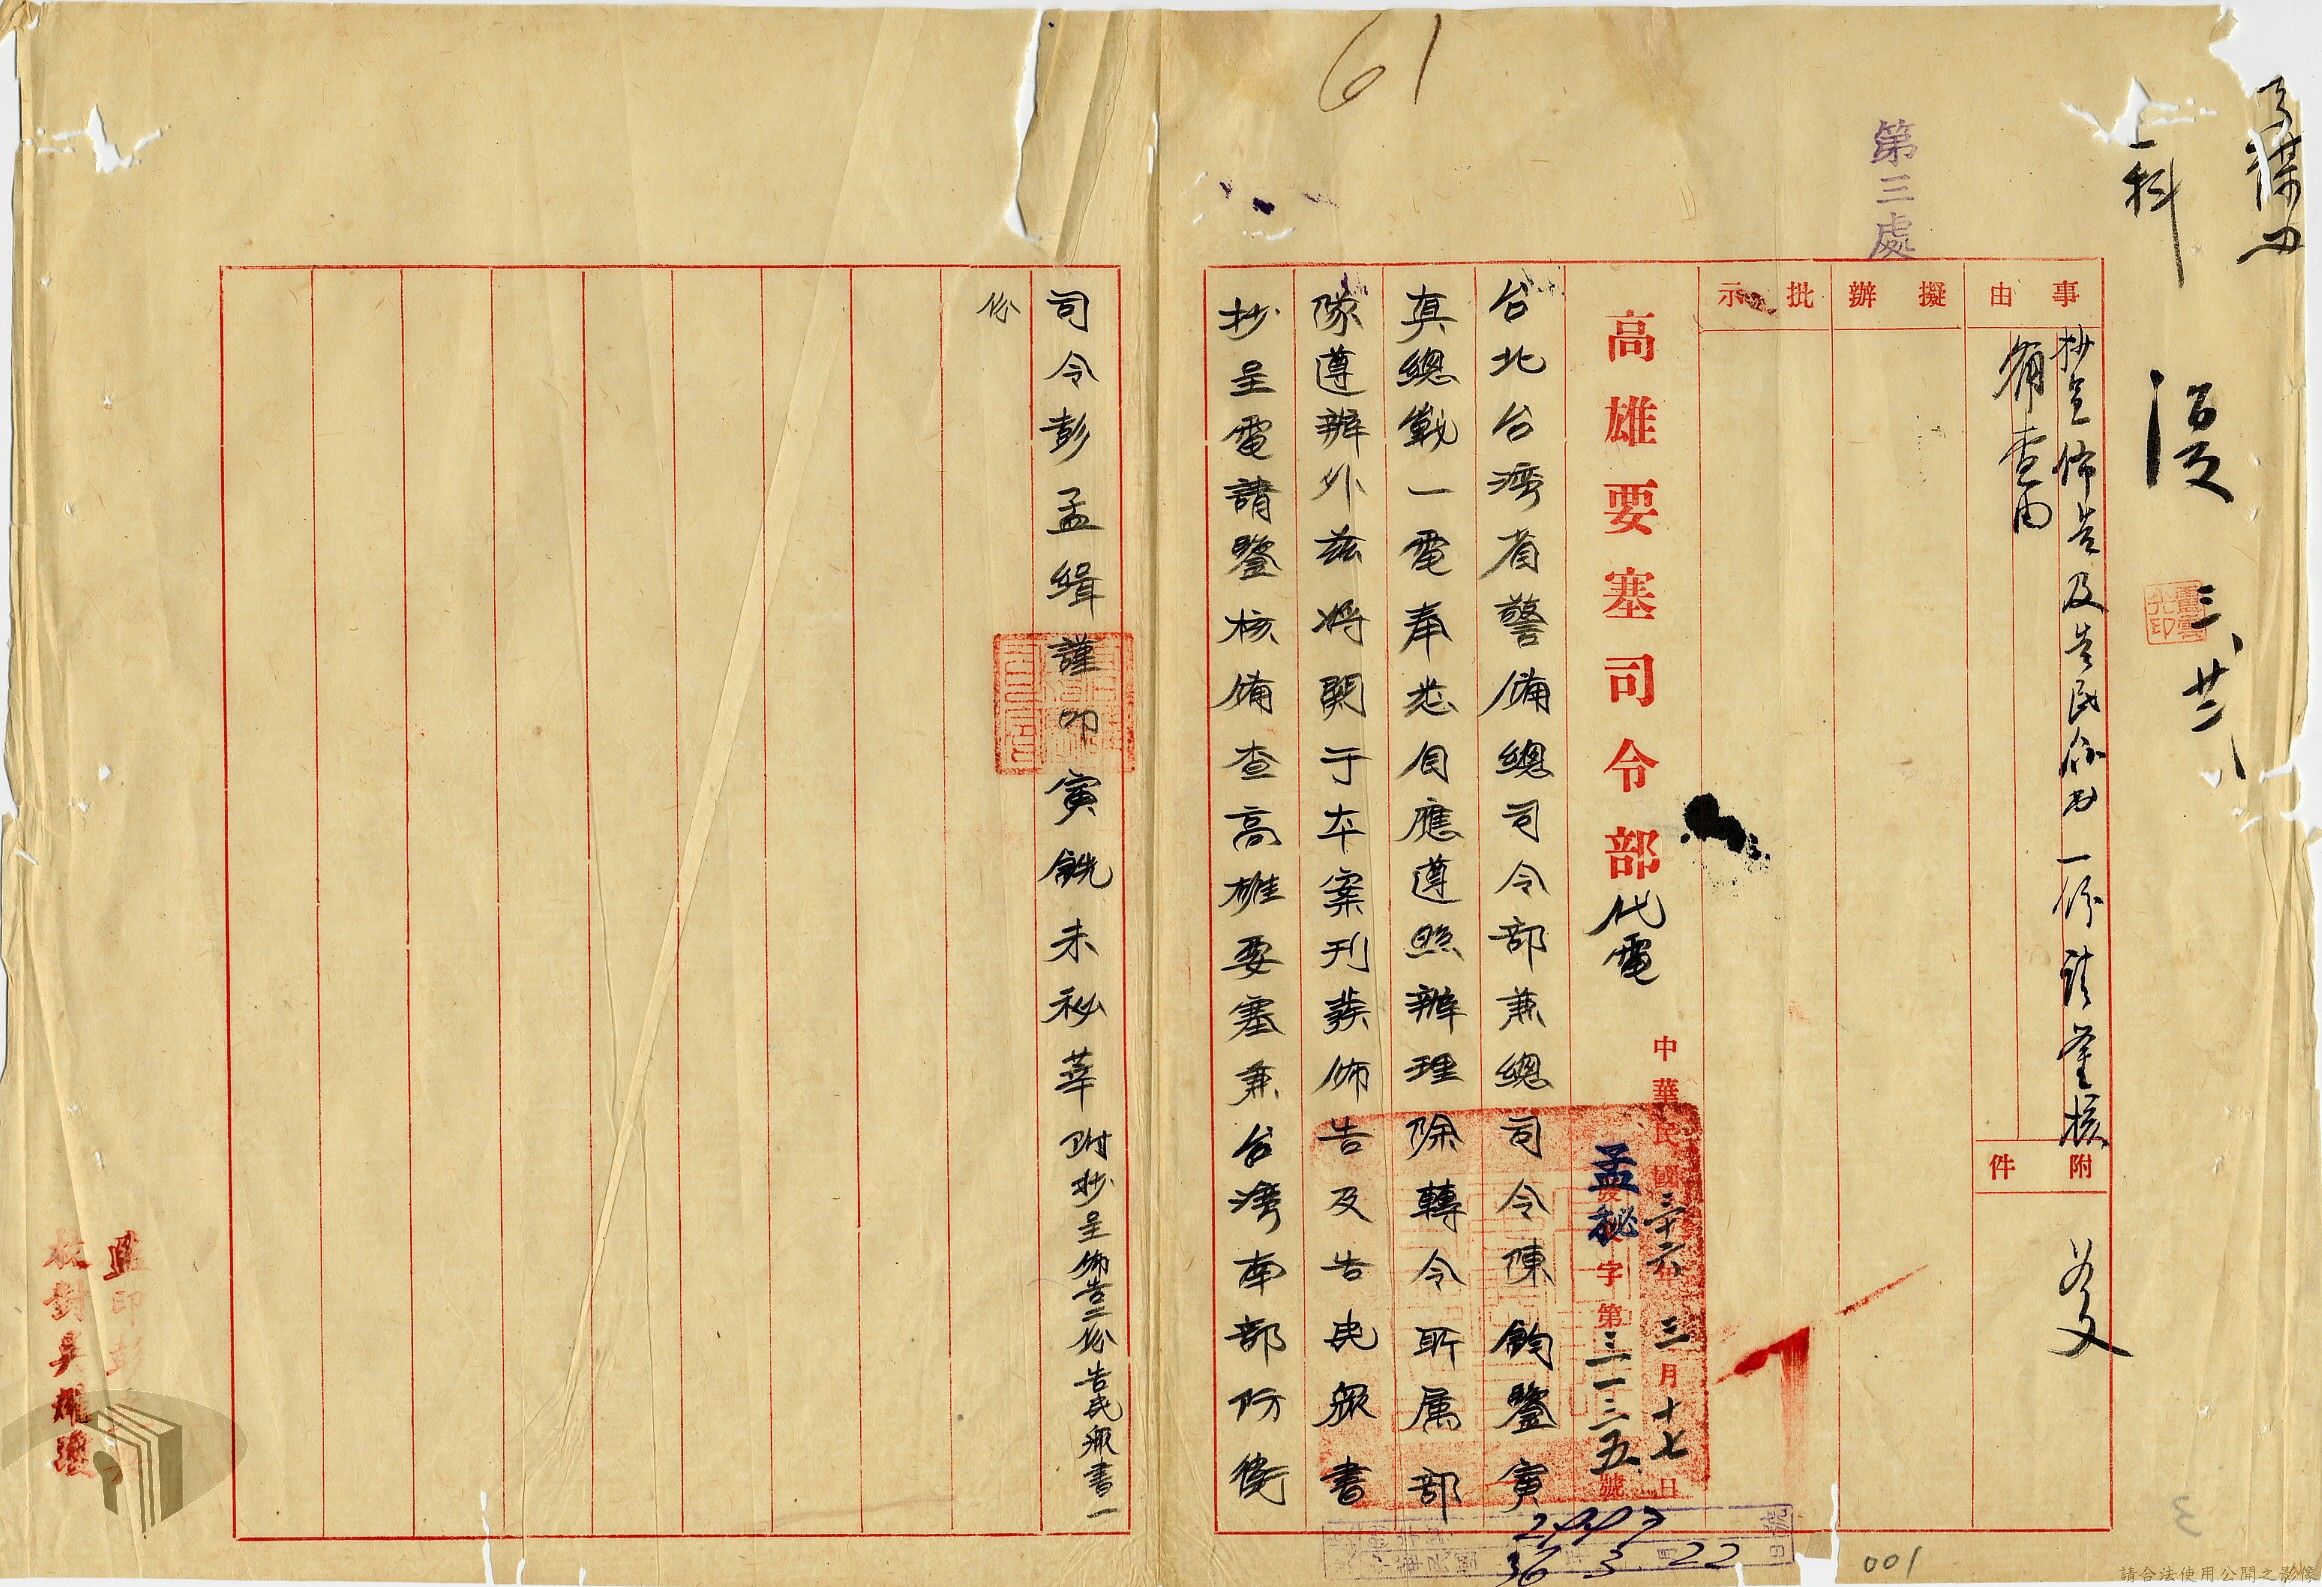 61
第三處
科
三、廿二、
事由
抄呈佈告及告民眾書一份請鑒核
備查由
附件
如文
擬辦
批示
高雄要塞司令部代電
中華民國三十六年三月十七日
孟秘字第三一三五號
台北台灣省警備總司令部兼總司令陳鈞鑒寅
真總戰一電奉悉自應遵照辦理除轉令所属部
隊遵辦外茲將関于本案刊發佈告及告民眾書
抄呈電請鑒核備查高雄要塞兼台灣南部防衛
司令彭孟緝謹叩寅銑未秘莘附抄呈佈告二份告民眾書一
份
監印彭
校對吳
36 3 22
001
3
請合法使用公開之影像